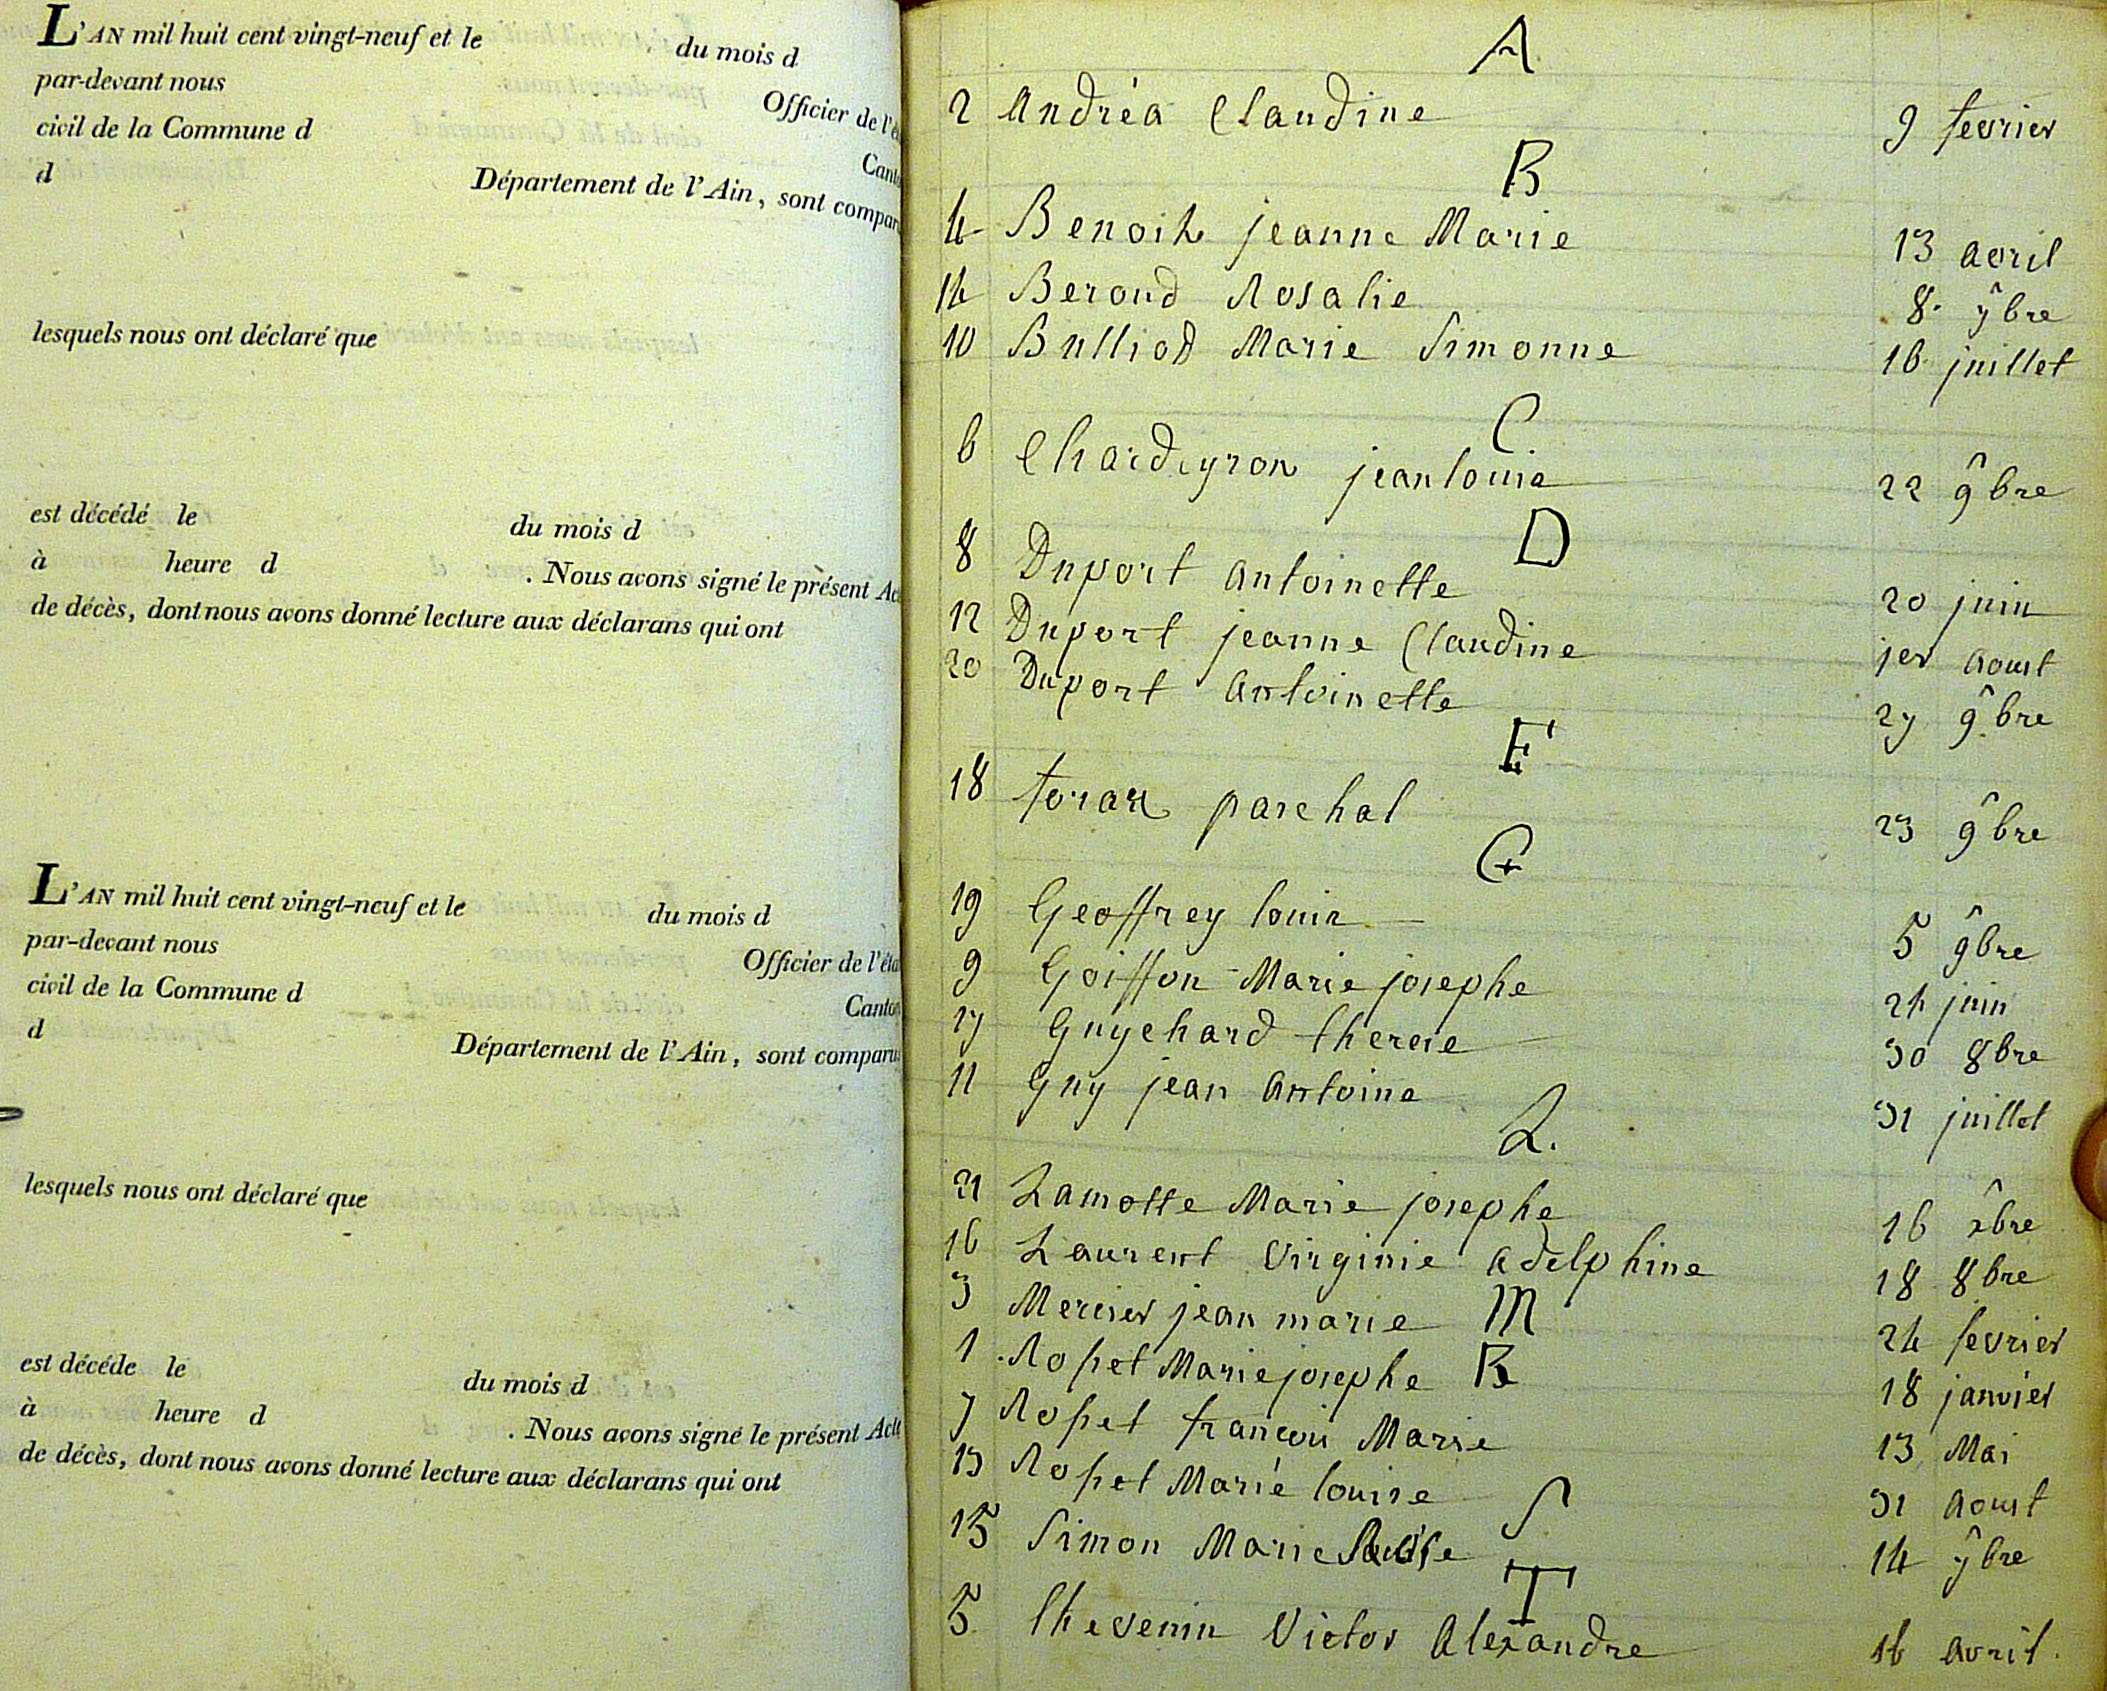 L'AN mil huit cent vingt-neuf et le du mois d
par-devant nous Officier de l'é
civil de la Commune d Cant
d Département de l'Ain, sont compar
lesquels nous ont déclaré que
est décédé le du mois d
à heure d . Nous avons signé le présent Ac
de décès, dont nous avons donné lecture aux déclarans qui ont
L'AN mil huit cent vingt-neuf et le du mois d
par-devant nous Officier de l'éta
civil de la Commune d Canto
d Département de l'Ain, sont comparu
lesquels nous ont déclaré que
est décéde le du mois d
à heure d . Nous avons signé le présent Acte
de décès, dont nous avons donné lecture aux déclarans qui ont
A
2 Andréa Claudine 9 fevrier
B
4 Benoit jeanne Marie 13 avril
14 Beroud Rosalie 8. 7bre
10 Bulliod Marie Simonne 16 juillet
C
6 Chardeyron jean louis 22 9bre
D
8 Duport antoinette 20 juin
12 Duport jeanne Claudine 1er aoust
20 Duport antoinette 27 9bre
F
18 foras paschal 23 9bre
G
19 Geoffrey louis 5 9bre
9 Goiffon Marie josephe 24 juin
17 Guychard therese 30 8bre
11 Guy jean antoine 31 juillet
L.
21 Lamotte Marie josephe 16 xbre
16 Laurent Virginie adelphine 18 8bre
3 Mercier jean marie M 24 fevrier
1 Ropet Marie josephe R 18 janvier
7 Ropet francois Marie 13 Mai
13 Ropet Marie louise 31 aoust
S
15 Simon Marie Louise 14 7bre
T
5 thevenin Victor alexandre 16 avril.